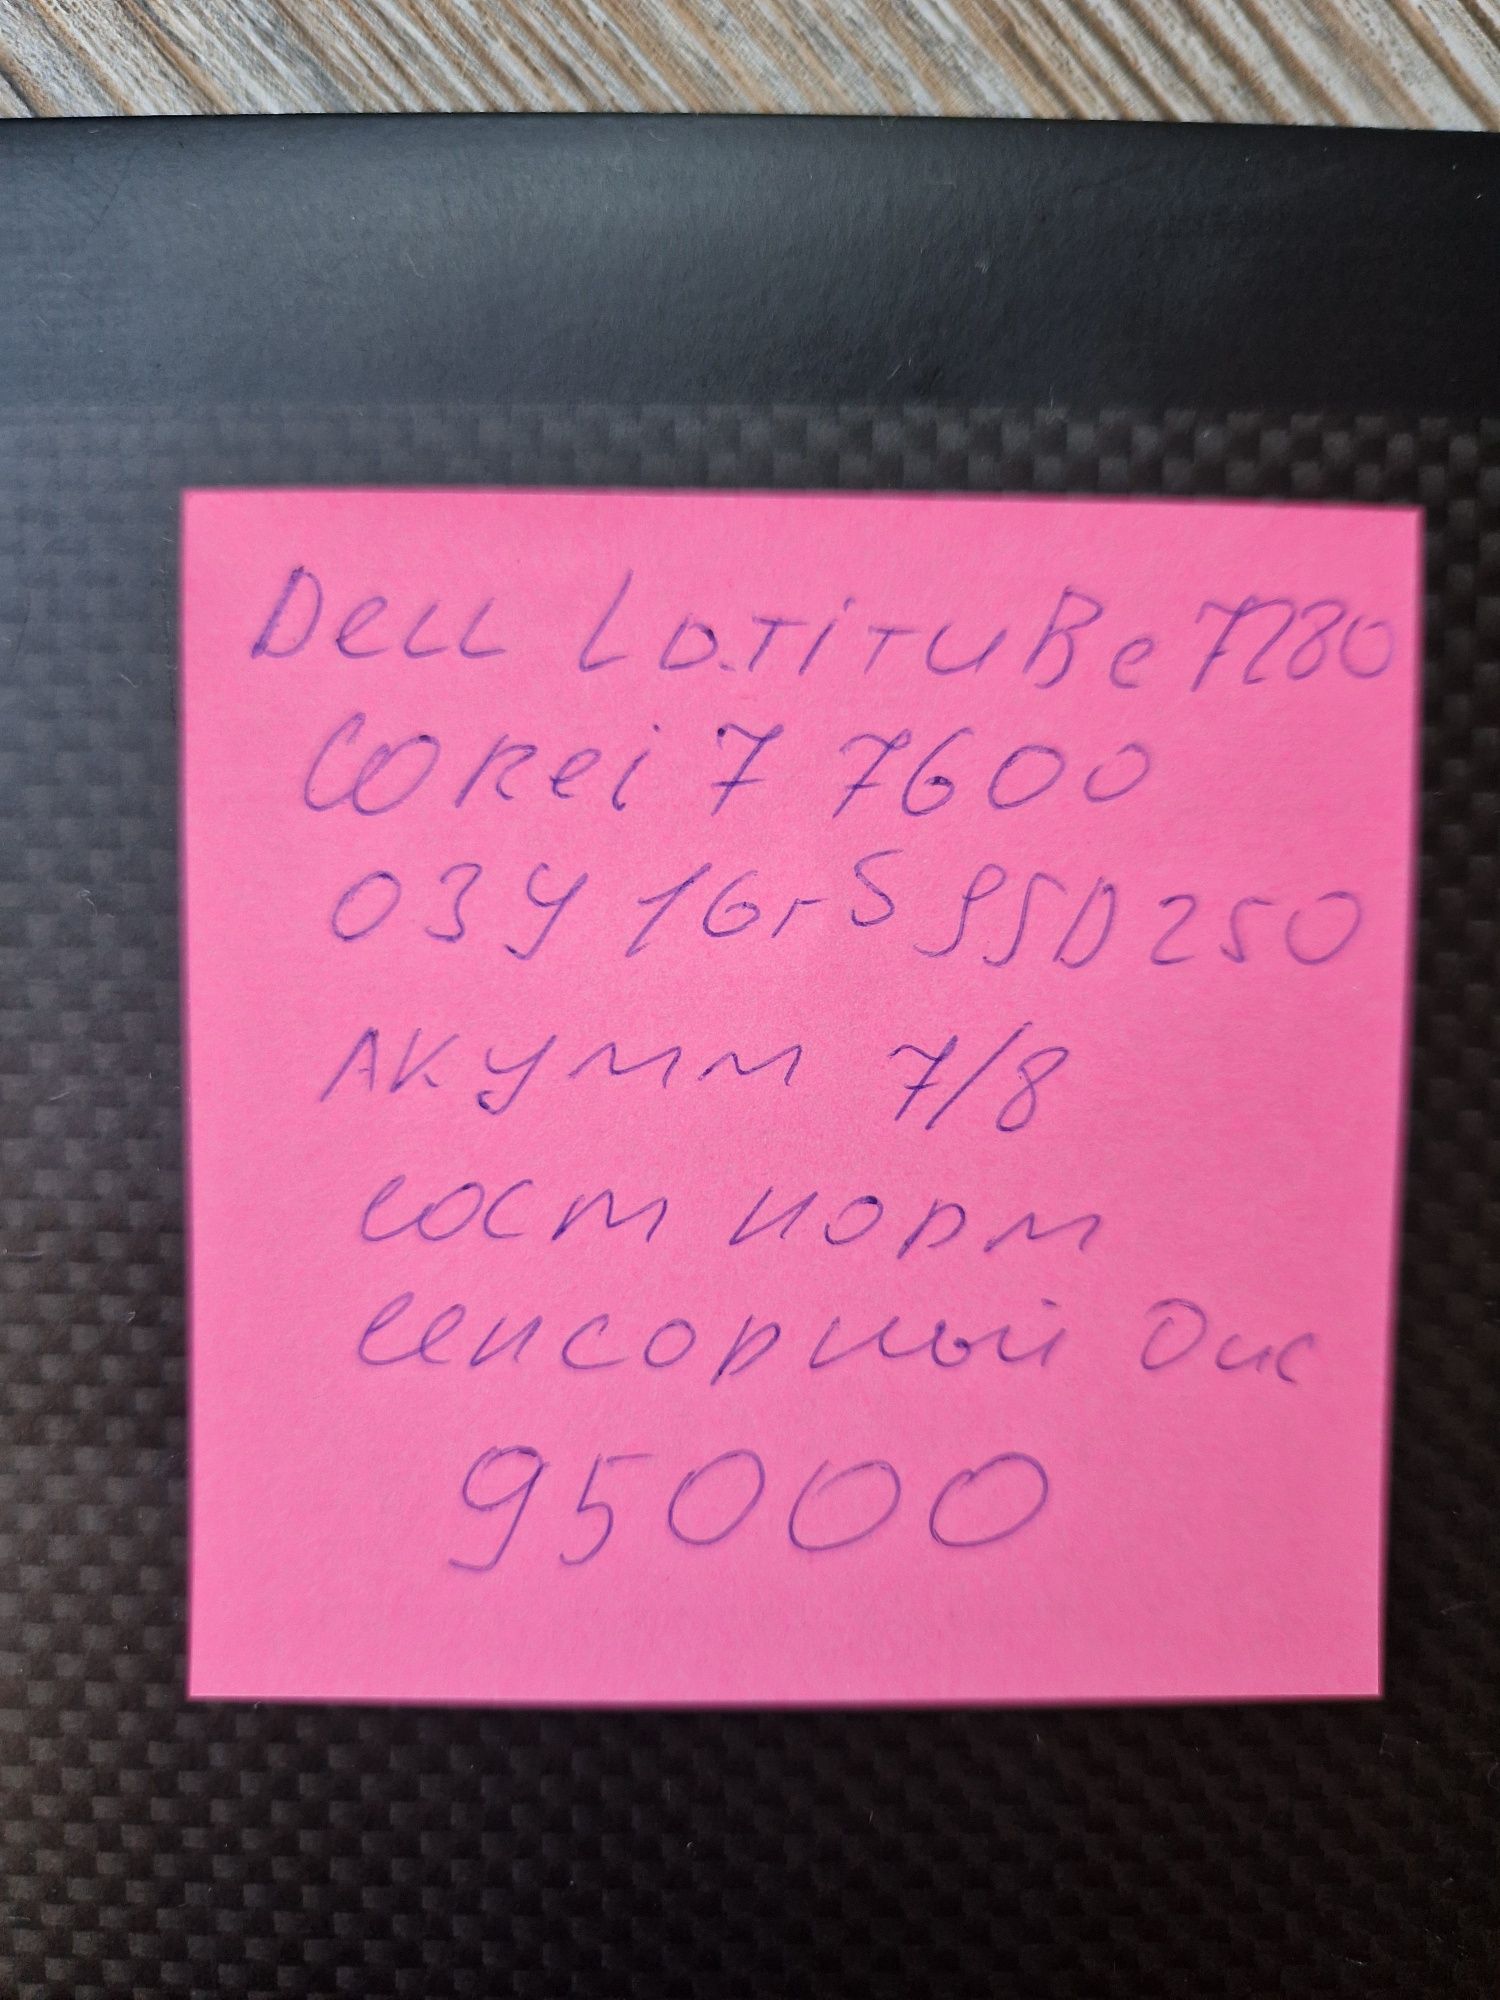 Dell LaTiTuBe 7280
Corei 7 7600
ОЗУ 16гБ SSD 250
АКУмм 7/8
сост норм
сенсорный Дис
95000